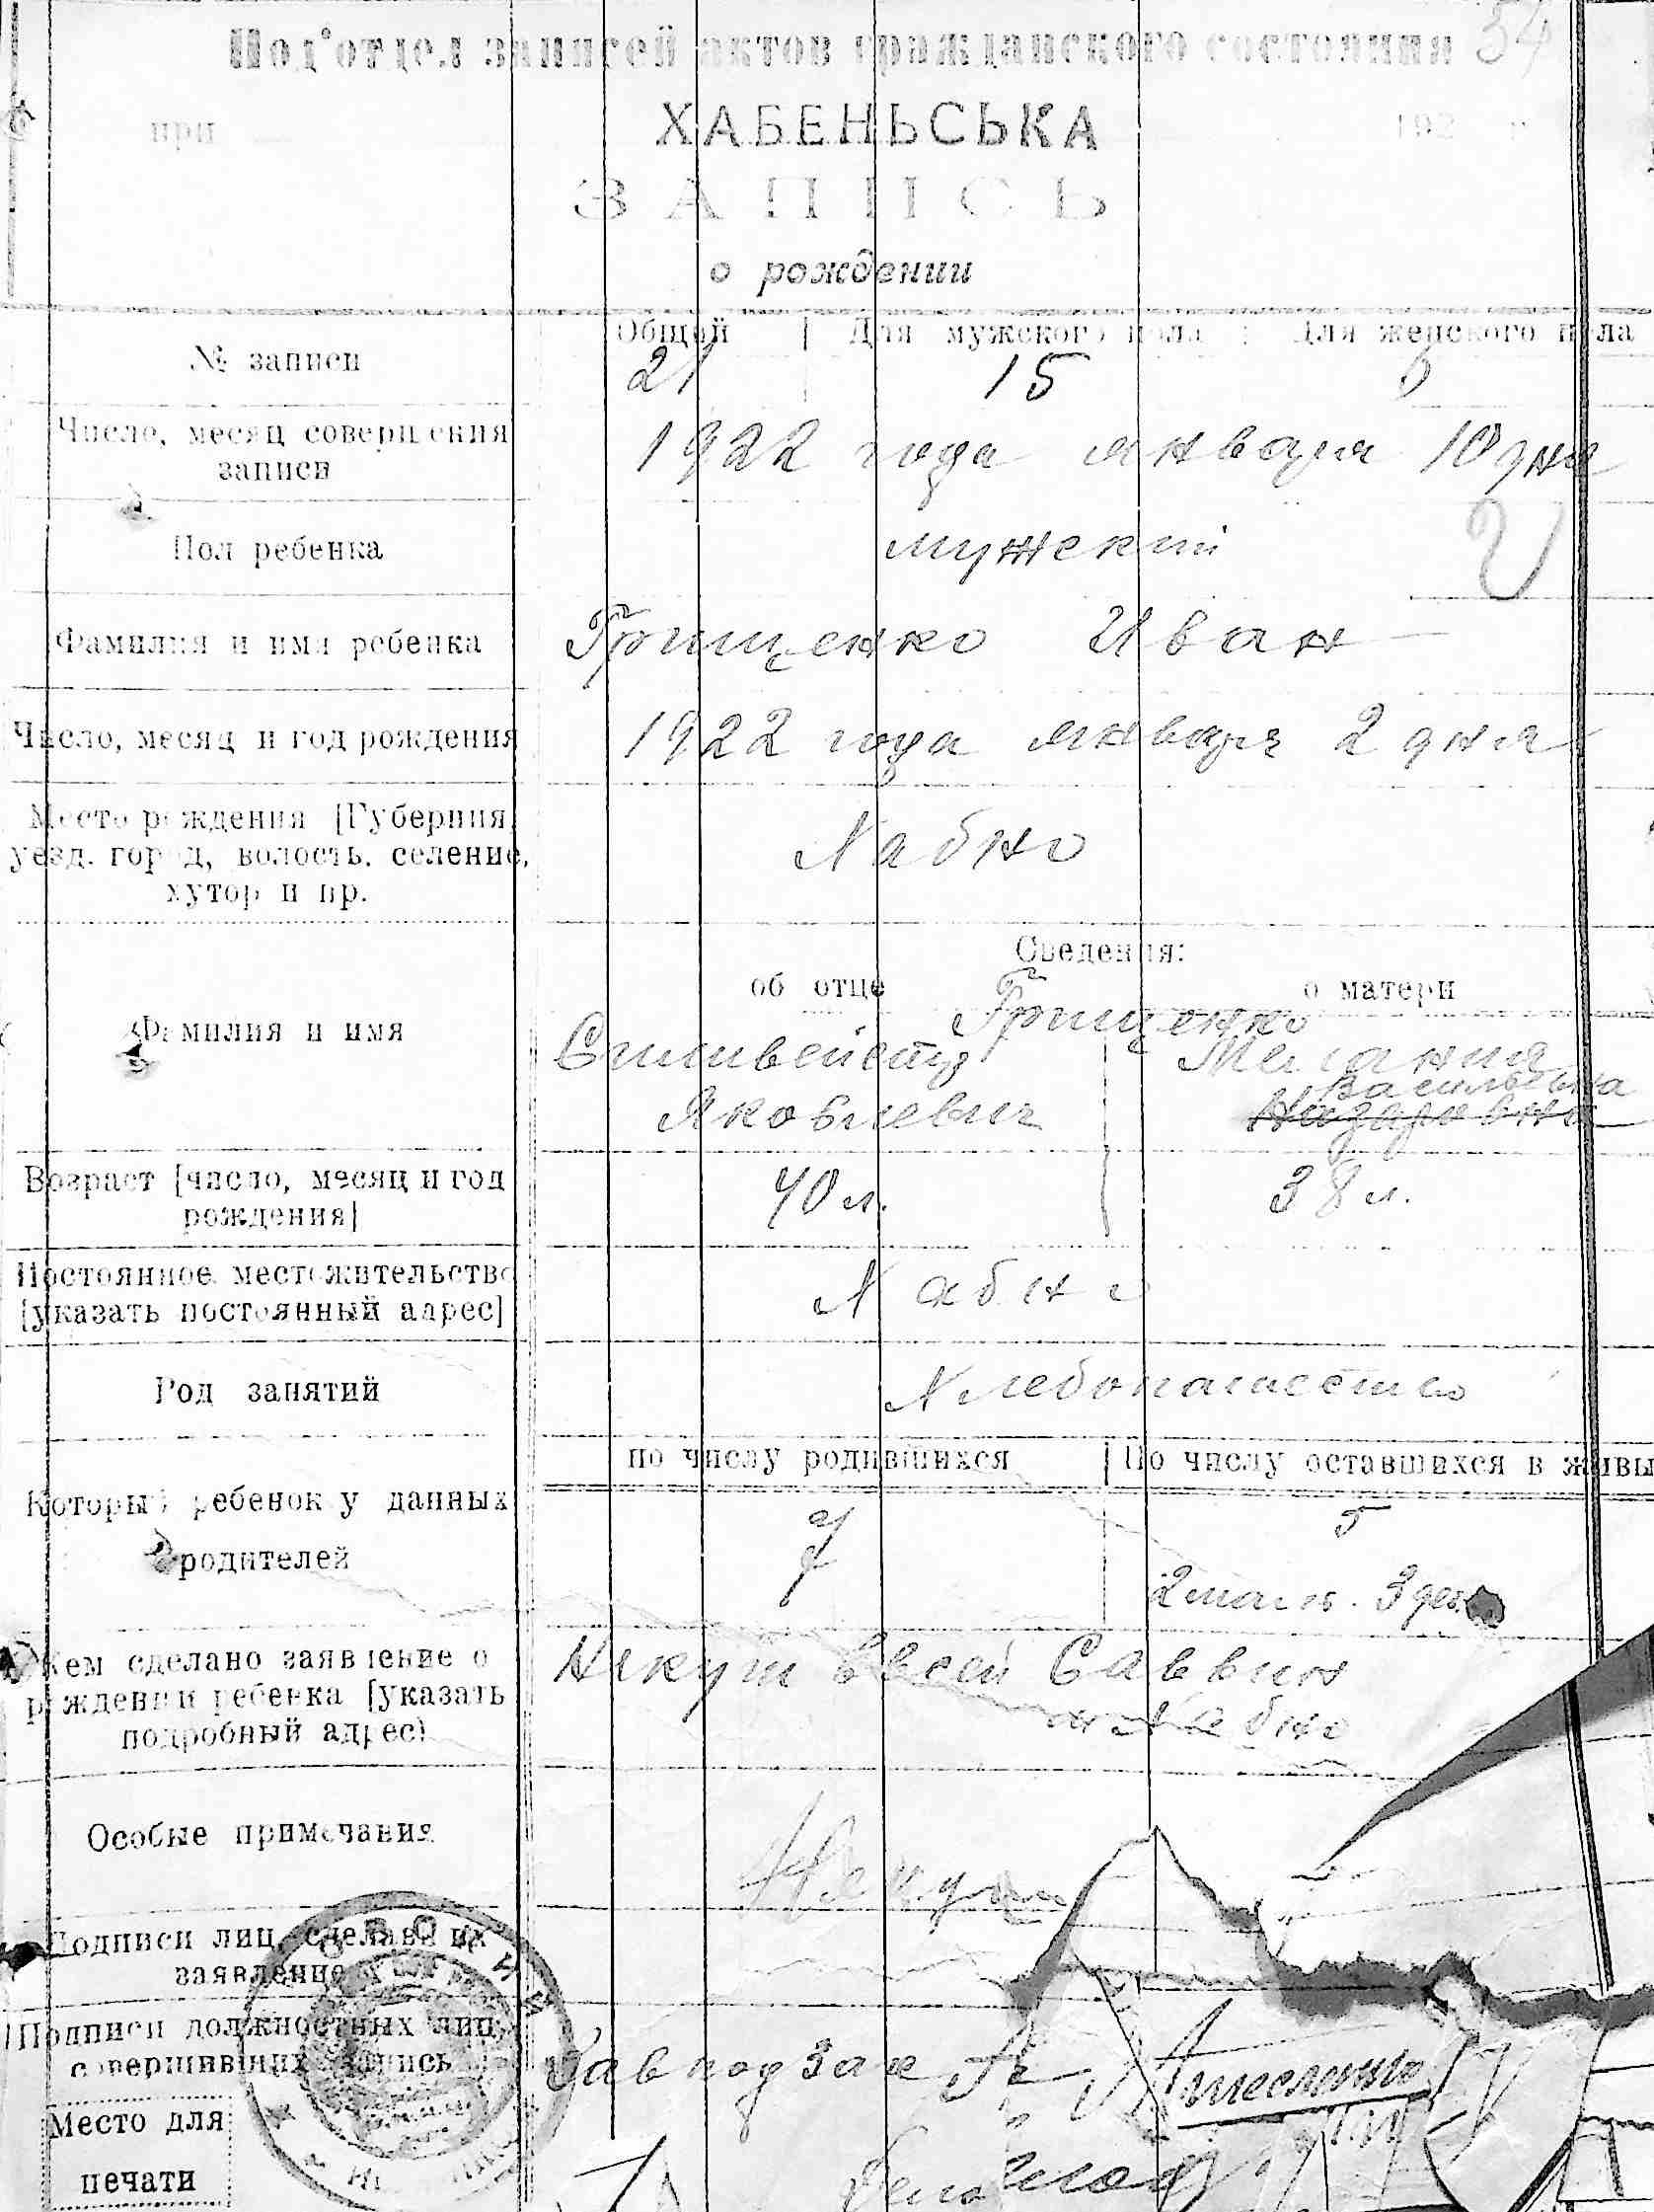 Под'отдел записей актов гражданского состояния 54
при ХАБЕНЬСЬКА 192
ЗАПИСЬ
о рождении
№ записи
Общой | Для мужского пола | Для женского пола
21 15 6
Число, месяц совершения записи
1922 года января 10 дня
Пол ребенка
мужский
Фамилия и имя ребенка
Грищенко Иван
Число, месяц и год рождения
1922 года января 2 дня
Место рождения [Губерния,
уезд. город, волость. селение,
хутор и пр.
Хабно
Сведения:
об отце о матери
Фамилия и имя
Грищенко
Сильвейстр Мелания
Васильевна
Яковлевич Назаровна
Возраст [число, месяц и год
рождения]
40 л. 38 л.
Постоянное местожительство
[указать постоянный адрес]
Хабно
Род занятий
Хлебопашество
по числу родившихся | По числу оставшихся в живы
Который ребенок у данных
родителей
7 5
2 мальч. 3 дев.
Кем сделано заявление о
рождении ребенка [указать
подробный адрес)
Евсей Саввин
м Хабно
Особые примечания
Подписи лиц, сделавших
заявление
Подписи должностных лиц,
совершивших запись
Завподзаг
Место для
печати